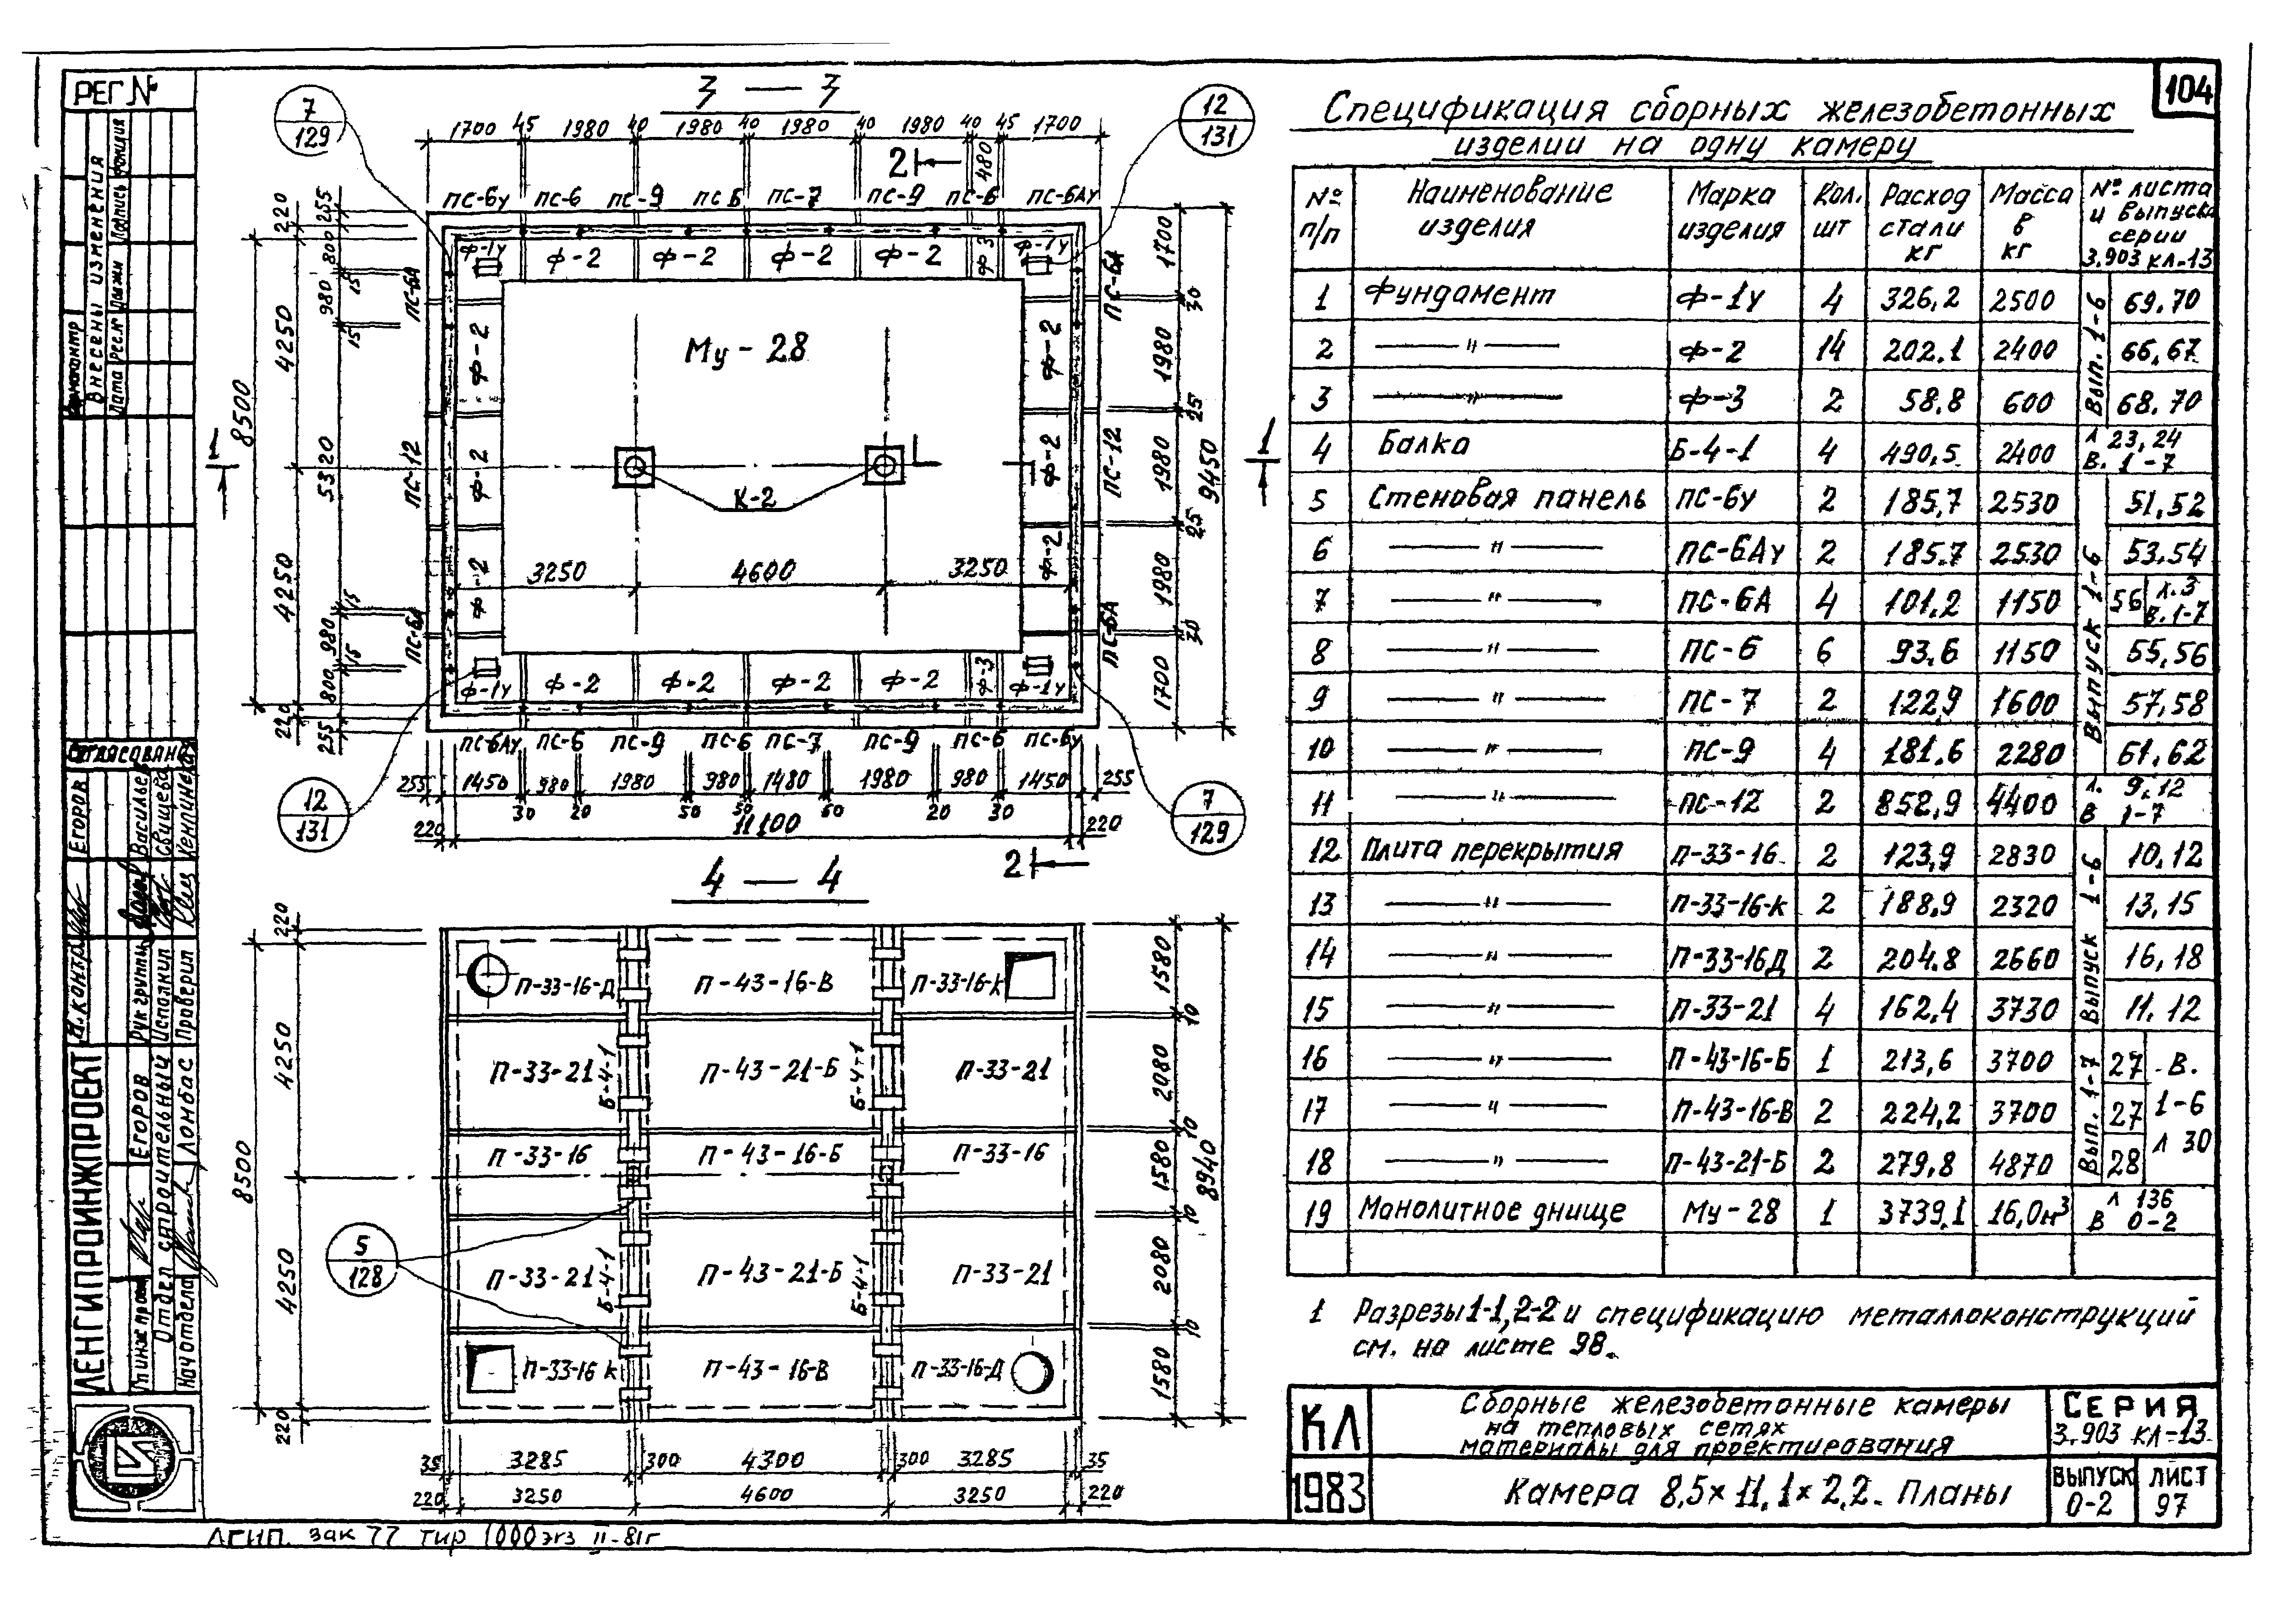 104
РЕГ.№
3 — 3
7
129
12
131
1700 45 1980 40 1980 40 1980 40 1980 40 45 1700
480
2
ПС-6у ПС-6 ПС-9 ПС Б ПС-7 ПС-9 ПС-6 ПС-6Ау
Ф-1у Ф-2 Ф-2 Ф-2 Ф-2 Ф-3 Ф-1у
220 255
800
15
980
15
4250
8500
5320
4250
15
980
15
800
220
255
ПС-6А
ПС-12
ПС-6А
Ф-2
Ф-2
Ф-2
Му - 28
К-2
3250 4600 3250
Ф-2
Ф-2
Ф-2
ПС-6А
ПС-12
ПС-6А
1700
30
1980
25
1980
25
1980
30
1700
9450
1
1
Ф-1у Ф-2 Ф-2 Ф-2 Ф-2 Ф-3 Ф-1у
ПС-6Ау ПС-6 ПС-9 ПС-6 ПС-7 ПС-9 ПС-6 ПС-6у
255 1450 980 1980 980 1480 1980 980 1450 255
30 20 50 50 50 20 30
220 11100 220
12
131
7
129
2
4 — 4
220
4250
8500
4250
220
П-33-16-Д П-43-16-В П-33-16-к
П-33-21 Б-4-1 П-43-21-Б Б-4-1 П-33-21
П-33-16 П-43-16-Б П-33-16
П-33-21 Б-4-1 П-43-21-Б Б-4-1 П-33-21
П-33-16 к П-43-16-В П-33-16-Д
5
128
1580
10
2080
10
1580
10
2080
10
1580
8940
35 3285 300 4300 300 3285 35
220 3250 4600 3250 220
Спецификация сборных железобетонных
изделии на одну камеру
№ п/п Наименование изделия Марка изделия Кол. шт Расход стали кг Масса в кг № листа и выпуска серии 3.903 кл-13
1 Фундамент Ф-1у 4 326,2 2500 Вып. 1-6 69.70
2 — " — Ф-2 14 202.1 2400 66,67
3 — " — Ф-3 2 58,8 600 68.70
4 Балка Б-4-1 4 490,5 2400 л 23,24 В. 1-7
5 Стеновая панель ПС-6у 2 185,7 2530 Выпуск 1-6 51,52
6 — " — ПС-6Ау 2 185.7 2530 53.54
7 — " — ПС-6А 4 101,2 1150 56 л.3 В.1-7
8 — " — ПС-6 6 93,6 1150 55,56
9 — " — ПС-7 2 122,9 1600 57,58
10 — " — ПС-9 4 181.6 2280 61,62
11 — " — ПС-12 2 852,9 4400 л. 9,12 В 1-7
12 Плита перекрытия П-33-16 2 123,9 2830 Выпуск 1-6 10.12
13 — " — П-33-16-к 2 188,9 2320 13,15
14 — " — П-33-16Д 2 204.8 2660 16,18
15 — " — П-33-21 4 162,4 3730 11.12
16 — " — П-43-16-Б 1 213,6 3700 Вып. 1-7 27 В.
17 — " — П-43-16-В 2 224,2 3700 27 1-6
18 — " — П-43-21-Б 2 279,8 4870 28 л 30
19 Монолитное днище Му-28 1 3739,1 16,0м³ л 136 В 0-2
1 Разрезы 1-1, 2-2 и спецификацию металлоконструкций
см. на листе 98.
КЛ
1983
Сборные железобетонные камеры
на тепловых сетях
материалы для проектирования
Камера 8,5×11,1×2,2. Планы
СЕРИЯ
3.903 кл-13
ВЫПУСК
0-2
ЛИСТ
97
Внесены изменения
Согласовано
ЛЕНГИПРОИНЖПРОЕКТ
Отдел строительный
Нач отдела Ломбас
ЕГОРОВ
Н. контр. ЕГОРОВ
Рук группы Васильев
Исполнил
Проверил
ЛГИП. зак 77 тир 1000экз II-81г